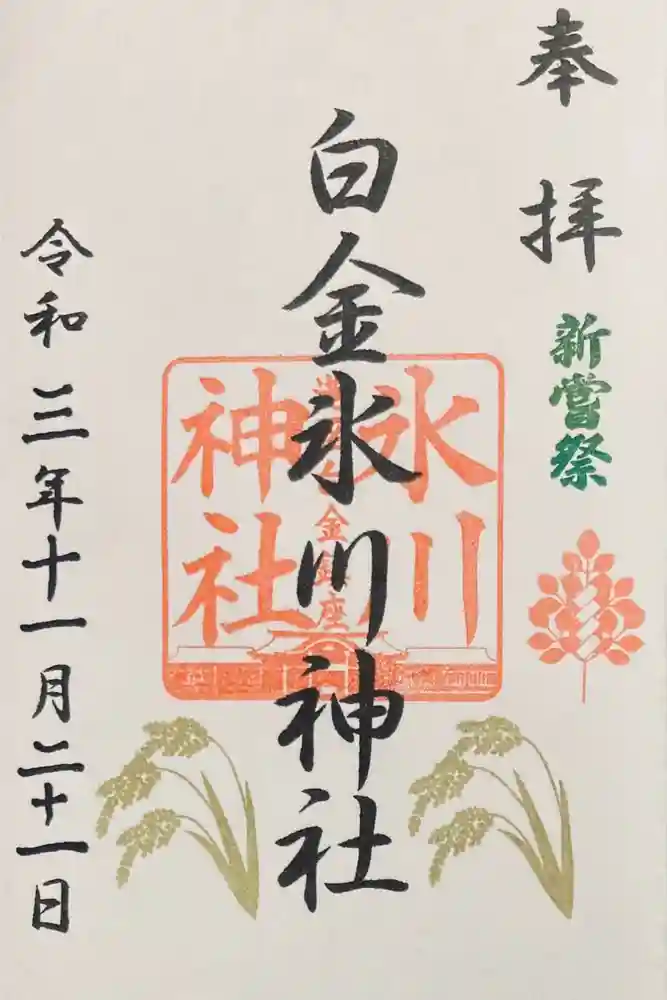 奉拝
新嘗祭
白金氷川神社
氷川
神社
金鎮座
令和三年十一月二十一日